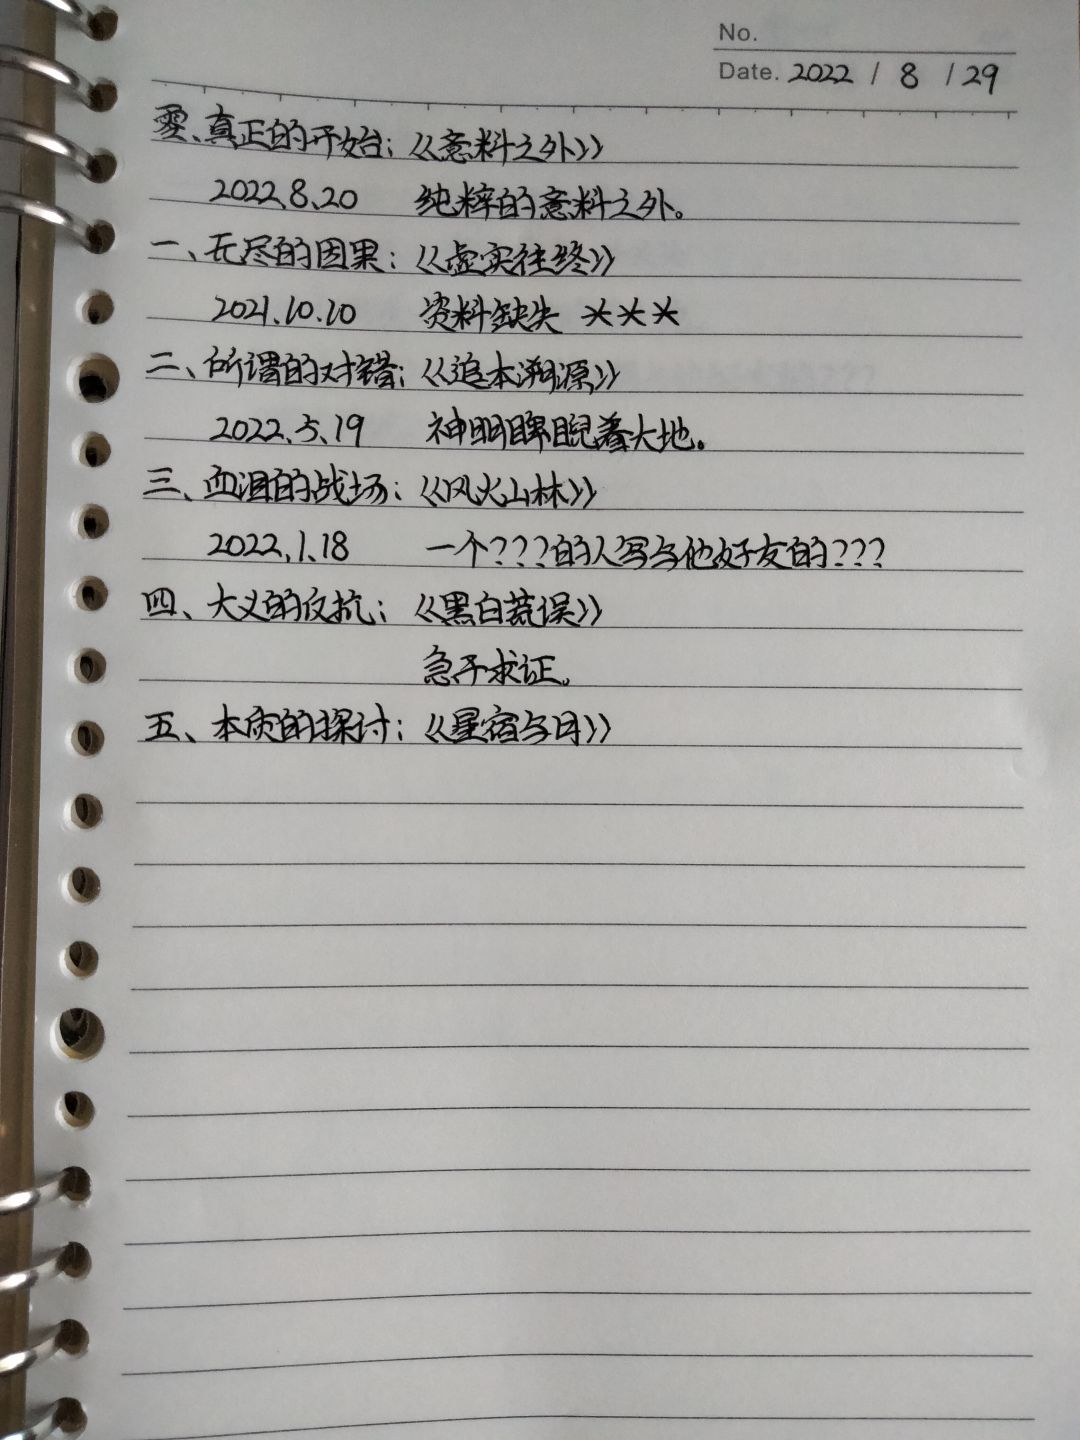 No.
Date. 2022 / 8 / 29
零、真正的开始：《意料之外》
2022.8.20 纯粹的意料之外。
一、无尽的因果：《虚实往终》
2021.10.10 资料缺失 ***
二、所谓的对错：《追本溯源》
2022.5.19 神明睥睨着大地。
三、血泪的战场：《风火山林》
2022.1.18 一个???的人写与他好友的???
四、大义的反抗：《黑白荒误》
急于求证。
五、本质的探讨：《星宿与日》